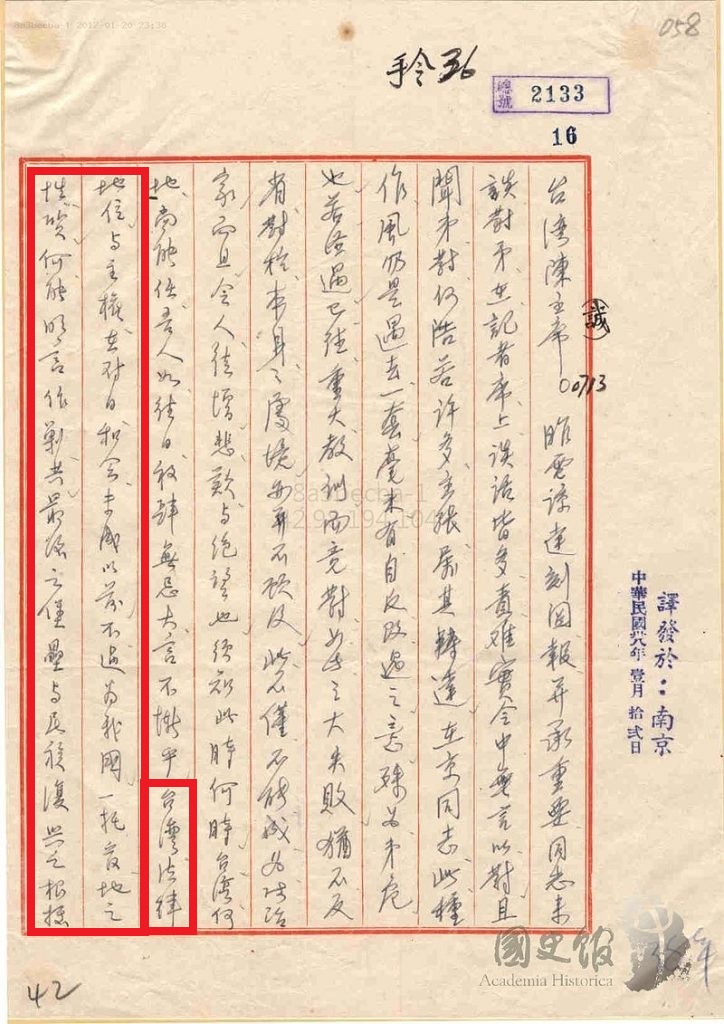 8a3becba-1 2012-01-20 23:36
058
手令36
總號 2133
16
台灣陳主席 0713 昨電諒達刻回報并承重要同志來
談對弟在記者席上談話皆多責難實令中無言以對且
聞弟對何浩若許多主張屬其轉達在京同志此種
作風仍是過去一套毫未有自反改過之意殊為弟危
也若經過已往重大教訓而竟對如此之大失敗猶不反
省對於本身之處境亦并不顧及此不僅不能成為政治
家而且令人徒增悲歎與絕望也須知此時何時台灣何
地尚能任吾人如往日放肆無忌大言不慚乎台灣法律
地位與主權在對日和會未成以前不過為我國一托管地之
性質何能明言作剿共最後之堡壘與民族復興之根據
誠
譯發於：南京
中華民國卅八年壹月拾貳日
8a3becba-1
國史館
Academia Historica
38年
42